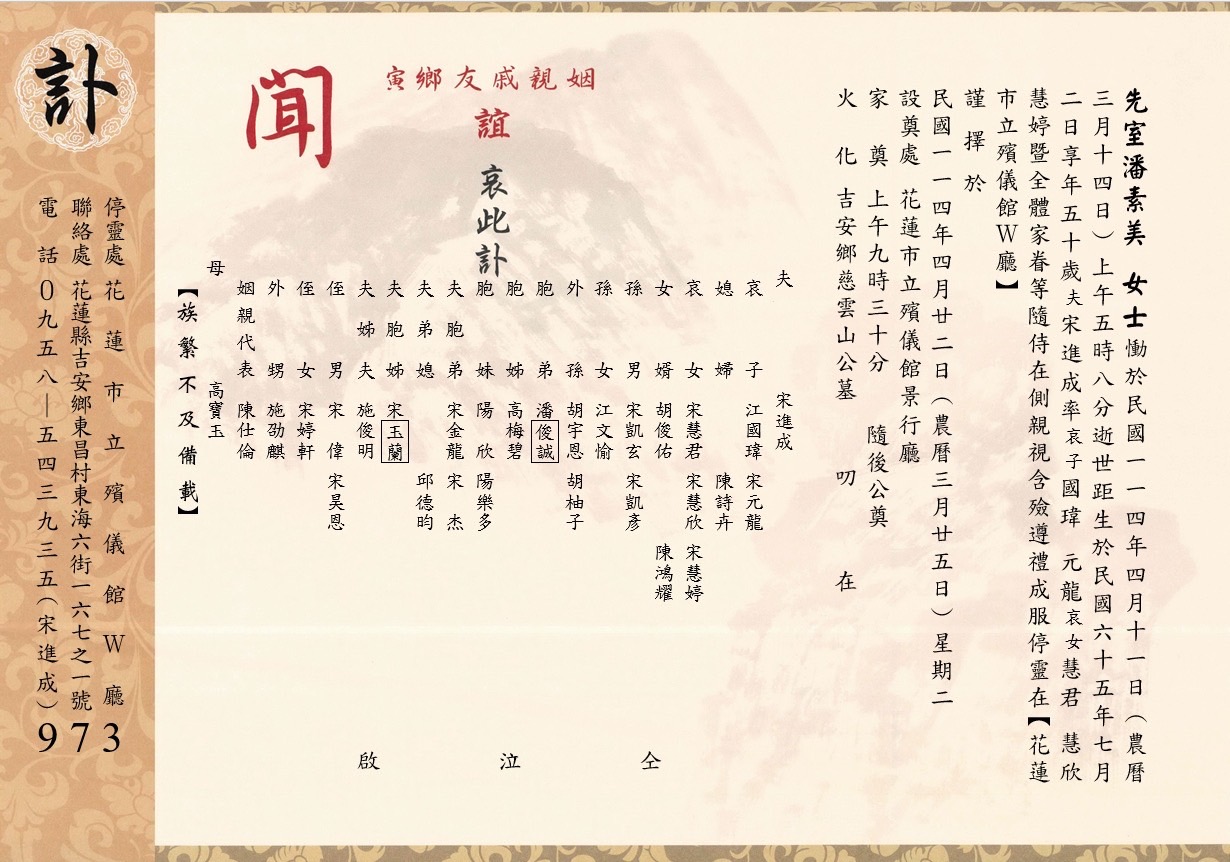 先室潘素美 女士慟於民國一一四年四月十一日（農曆
三月十四日）上午五時八分逝世距生於民國六十五年七月
二日享年五十歲夫宋進成率哀子國瑋 元龍哀女慧君 慧欣
慧婷暨全體家眷等隨侍在側親視含殮遵禮成服停靈在【花蓮
市立殯儀館W廳】
謹擇於
民國一一四年四月廿二日（農曆三月廿五日）星期二
設奠處 花蓮市立殯儀館景行廳
家奠 上午九時三十分 隨後公奠
火化 吉安鄉慈雲山公墓 叨在
姻親戚友鄉寅
誼
哀此訃
聞
夫 宋進成
哀子 江國瑋 宋元龍
媳婦 陳詩卉
哀女 宋慧君 宋慧欣 宋慧婷
女婿 胡俊佑 陳鴻耀
孫男 宋凱玄 宋凱彥
孫女 江文愉
外孫 胡宇恩 胡柚子
胞弟 潘俊誠
胞姊 高梅碧
胞妹 陽欣 陽樂多
夫胞弟 宋金龍 宋杰
夫弟媳 邱德昀
夫胞姊 宋玉蘭
夫姊夫 施俊明
侄男 宋偉 宋昊恩
侄女 宋婷軒
外甥 施劭麒
姻親代表 陳仕倫
母 高寶玉
仝泣啟
【族繁不及備載】
訃
停靈處 花蓮市立殯儀館W廳
聯絡處 花蓮縣吉安鄉東昌村東海六街一六七之一號
電話 0九五八—五四三九三五（宋進成）
973